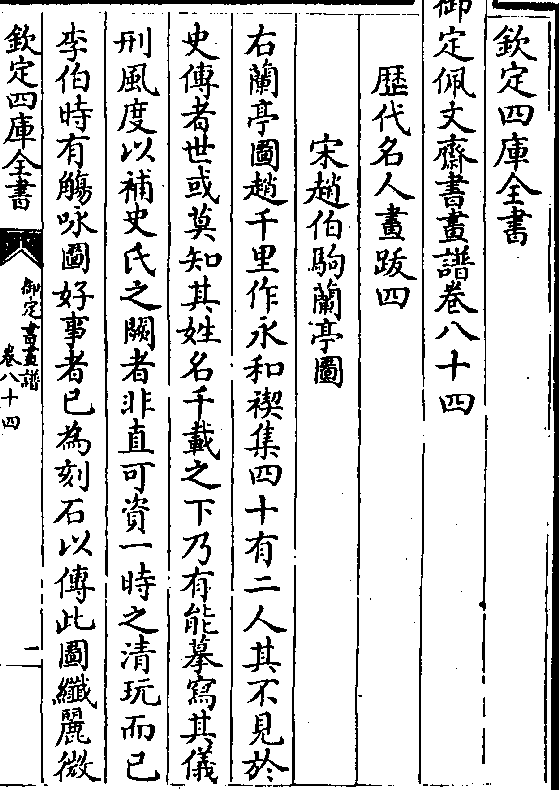 欽定四庫全書
御定佩文齋書畫譜卷八十四
歴代名人畫䟦四
宋趙伯駒蘭亭圖
右蘭亭圖趙千里作永和禊集四十有二人其不見於
史傳者世或莫知其姓名千載之下乃有能摹寫其儀
刑風度以補史氏之闕者非直可資一時之清玩而已
李伯時有觴咏圖好事者已為刻石以傳此圖纖麗微
欽定四庫全書
御定書畫譜
卷八十四
一